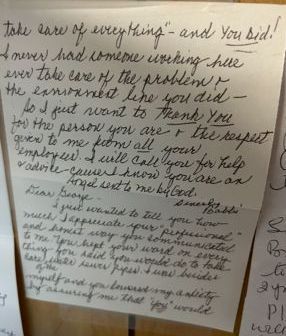 take care of everything" - and You Did!
I never had someone working here
ever take care of the problem &
the enviroment like you did -
So I just want to Thank You
for the person you are & the respect
given to me from all your
employees. I will call you for help
& advice cause I know you are an
Angel sent to me by God.
Sincerely
Bobbi
Dear George -
I just wanted to tell you how
much I appreciate your "professional"
and honest way you communicated
to me. You kept your word on every
thing you said you would do to take
care were sewer pipes. I was besides
myself and you lowered my anxiety
by assuring me that "you" would